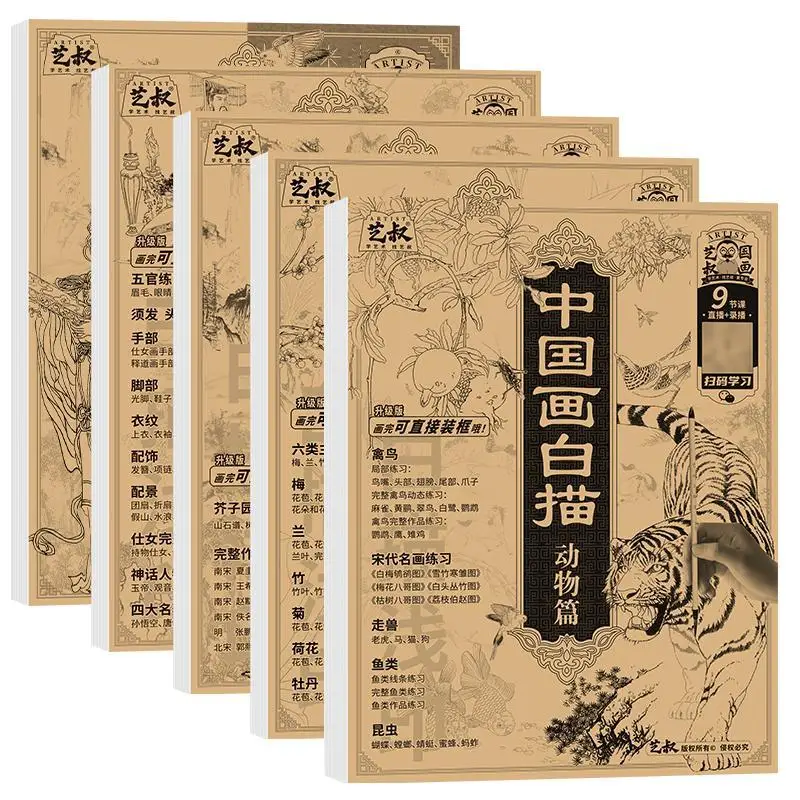 ARTIST
艺叔®
学艺术 找艺叔
ARTIST
ARTIST
艺叔®
学艺术 找艺叔
升级版
画完可
五官练
眉毛、眼睛
须发 头
手部
仕女画手部
释道画手部
脚部
光脚、鞋子
衣纹
上衣、衣袖
配饰
发簪、项链
配景
团扇、折扇
假山、水浪
仕女完
持物仕女、
神话人物
玉帝、观音
四大名
孙悟空、唐
ARTIST
艺叔®
学艺术 找艺叔
升级版
画完可
芥子园
山石谱、树
完整作
南宋 夏圭
南宋 王希
南宋 赵黻
南宋 佚名
明 张鹏
北宋 郭熙
ARTIST
艺叔®
学艺术 找艺叔
升级版
画完可
六类主
梅、兰、竹
梅
花苞、花
花朵和花
兰
花苞、花
兰叶、完
竹
竹叶、竹
菊
花苞、花
荷花
花苞、花
牡丹
花苞、花
ARTIST
艺叔®
学艺术 找艺叔
中国画白描
动物篇
ARTIST
艺叔国画
9节课
直播+录播
扫码学习
升级版
画完可直接装框哦!
禽鸟
局部练习:
鸟嘴、头部、翅膀、尾部、爪子
完整禽鸟动态练习:
麻雀、黄鹂、翠鸟、白鹭、鹦鹉
禽鸟完整作品练习:
鹦鹉、鹰、雉鸡
宋代名画练习
《白梅鸲鹆图》《雪竹寒雏图》
《梅花八哥图》《白头丛竹图》
《枯树八哥图》《荔枝伯赵图》
走兽
老虎、马、猫、狗
鱼类
鱼类线条练习
完整鱼类练习
鱼类作品练习
昆虫
蝴蝶、螳螂、蜻蜓、蜜蜂、蚂蚱
艺叔 版权所有© 侵权必究